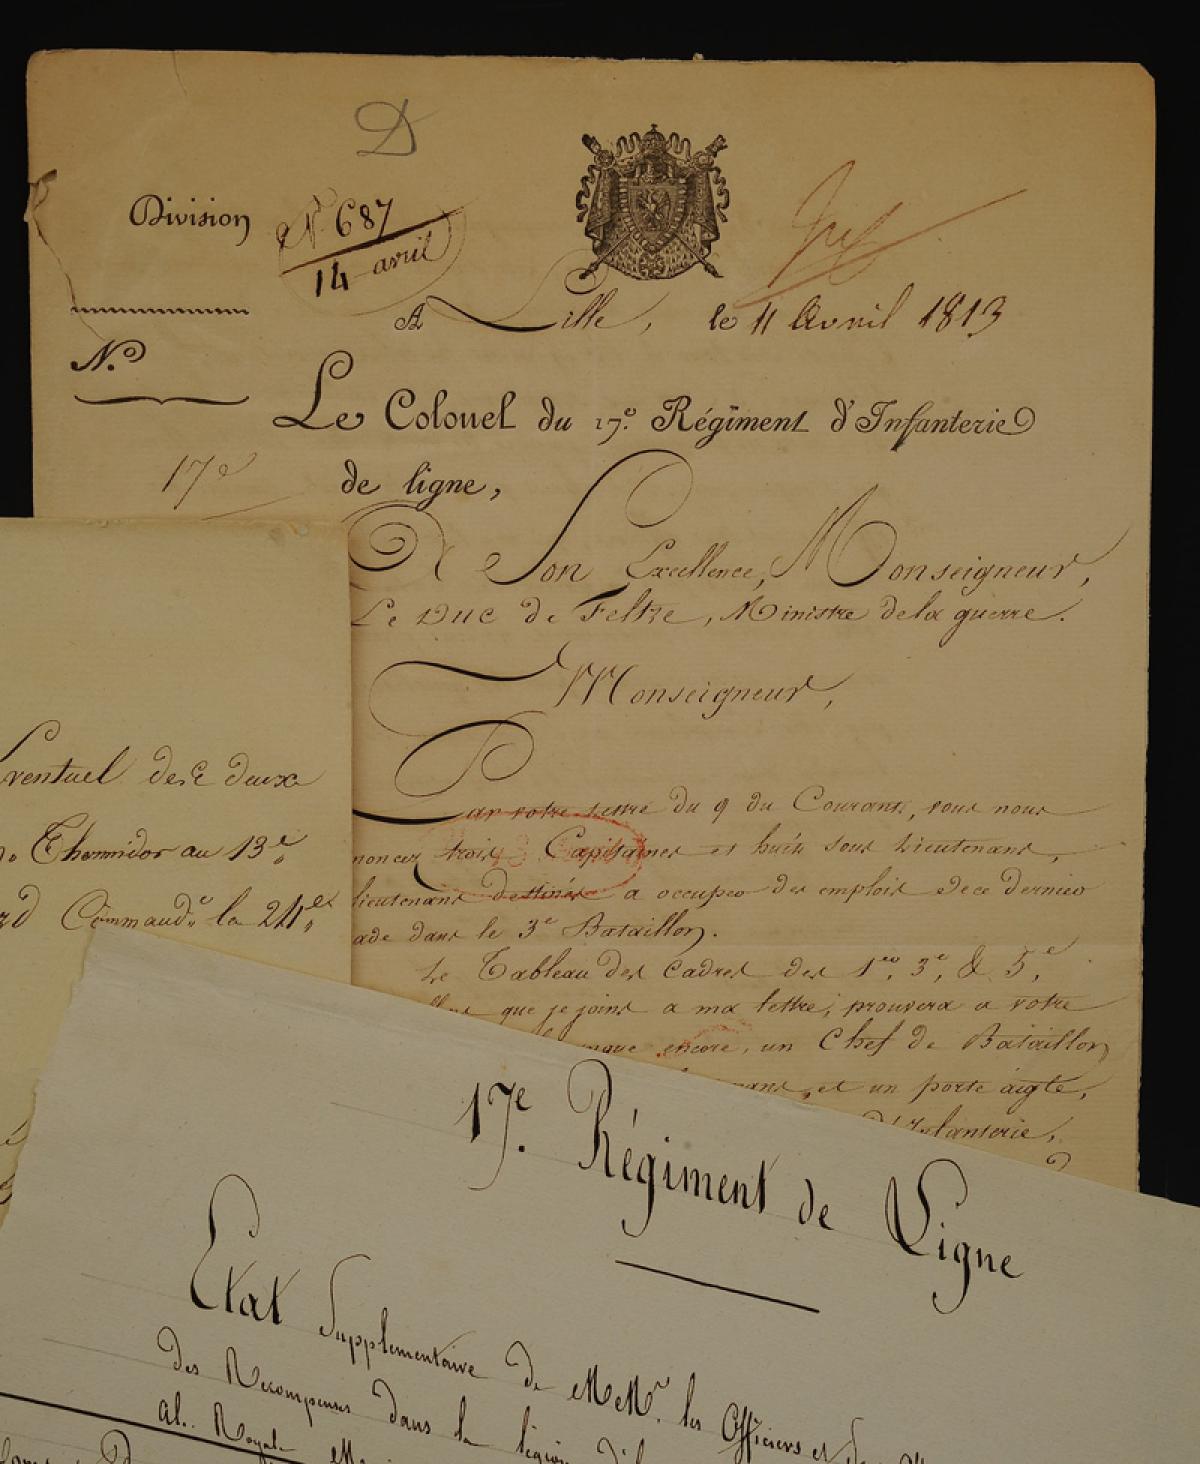 D
Division
N.º 687
14 avril
A Lille, le 11 Avril 1813
N.º
Le Colonel du 17.e Régiment d'Infanterie
17e
de ligne,
A Son Excellence, Monseigneur,
Le Duc de Feltre, Ministre de la guerre.
Monseigneur,
Par votre lettre du 9 du Courant, vous nous
noncez trois Capitaines et huit sous Lieutenans,
lieutenans destinés a occuper des emplois de ce dernier
ade dans le 3e Bataillon.
Le Tableau des cadres des 1er, 3e, & 5e,
que je joins a ma lettre, prouvera a votre
encore, un Chef de Bataillon
et un porte aigle,
d'Infanterie,
ventuel des deux
Thermidor au 13e
Command.t la 24e
17e. Régiment de Ligne
Etat Supplémentaire de MM.rs les Officiers et
des Recompenses dans la légion
al.. Royale